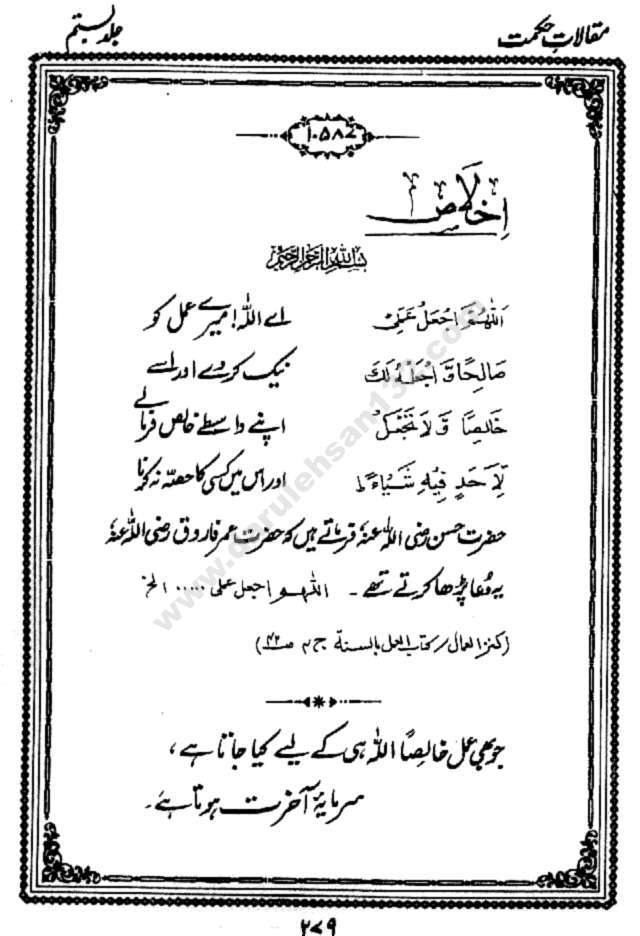 مقالات حکمت
جلد بستم
۱۰۵۸۷
اخلاص
بسم اللہ الرحمن الرحیم
اَللّٰهُمَّ اجْعَلْ عَمَلِيْ اے اللہ! میرے عمل کو
صَالِحًا وَّ اجْعَلْهُ لَكَ نیک کردے اور اسے
خَالِصًا وَّ لَا تَجْعَلْ اپنے واسطے خالص فرمالے
لِاَحَدٍ فِيْهِ شَيْـًٔا ط اور اس میں کسی کا حصّہ نہ کرنا
حضرت حسن رضی اللہ عنہٗ فرماتے ہیں کہ حضرت عمر فاروق رضی اللہ عنہٗ
یہ دُعا پڑھا کرتے تھے ۔ اللّٰهم اجعل عملی ..... الخ
(کنز العمال / کتاب العمل بالسنة ج ۲ صـ ۴۲)
جو بھی عمل خالصًا اللہ ہی کے لیے کیا جاتا ہے ،
سرمایۂ آخرت ہوتا ہے۔
۲۷۹
www.darulehsan139.com